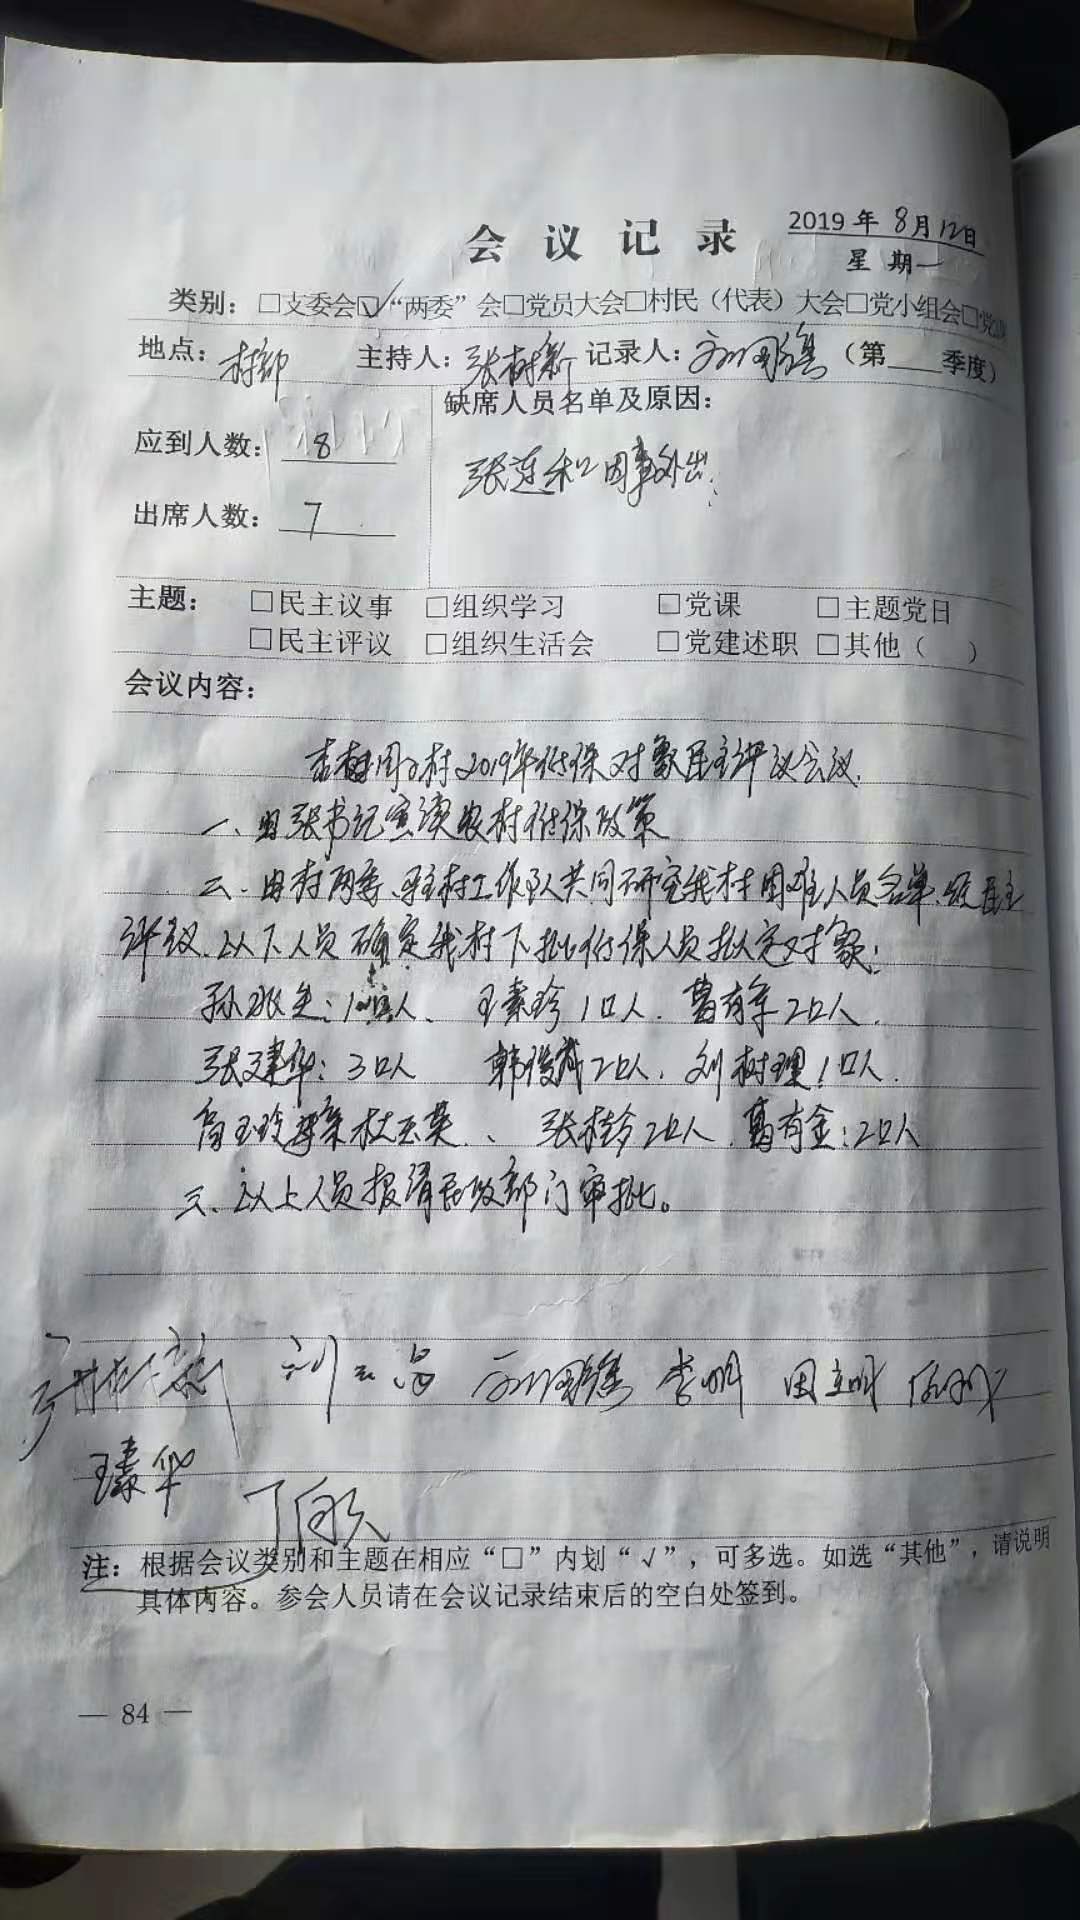 会议记录
2019年8月12日
星期一
类别：□支委会☑“两委”会□党员大会□村民（代表）大会□党小组会□党
地点：村部 主持人：张树新 记录人： （第 季度）
应到人数：8
缺席人员名单及原因：
张连和因事外出
出席人数：7
主题：□民主议事 □组织学习 □党课 □主题党日
□民主评议 □组织生活会 □党建述职 □其他（ ）
会议内容：
村2019年低保对象民主评议会议
一、由张书记宣读农村低保政策
二、由村两委、驻村工作队共同研究我村困难人员名单，经民主
评议，以下人员确定我村下批低保人员拟定对象：
孙 ：1 人、 王素珍1口人. 葛有军2口人.
张建华：3口人 韩俊 2口人. 刘树理1口人.
杜玉英、 张桂 2口人. 葛有金：2口人
三、以上人员报请民政部门审批。
李明
王素华
注：根据会议类别和主题在相应“□”内划“√”，可多选。如选“其他”，请说明
具体内容。参会人员请在会议记录结束后的空白处签到。
— 84 —